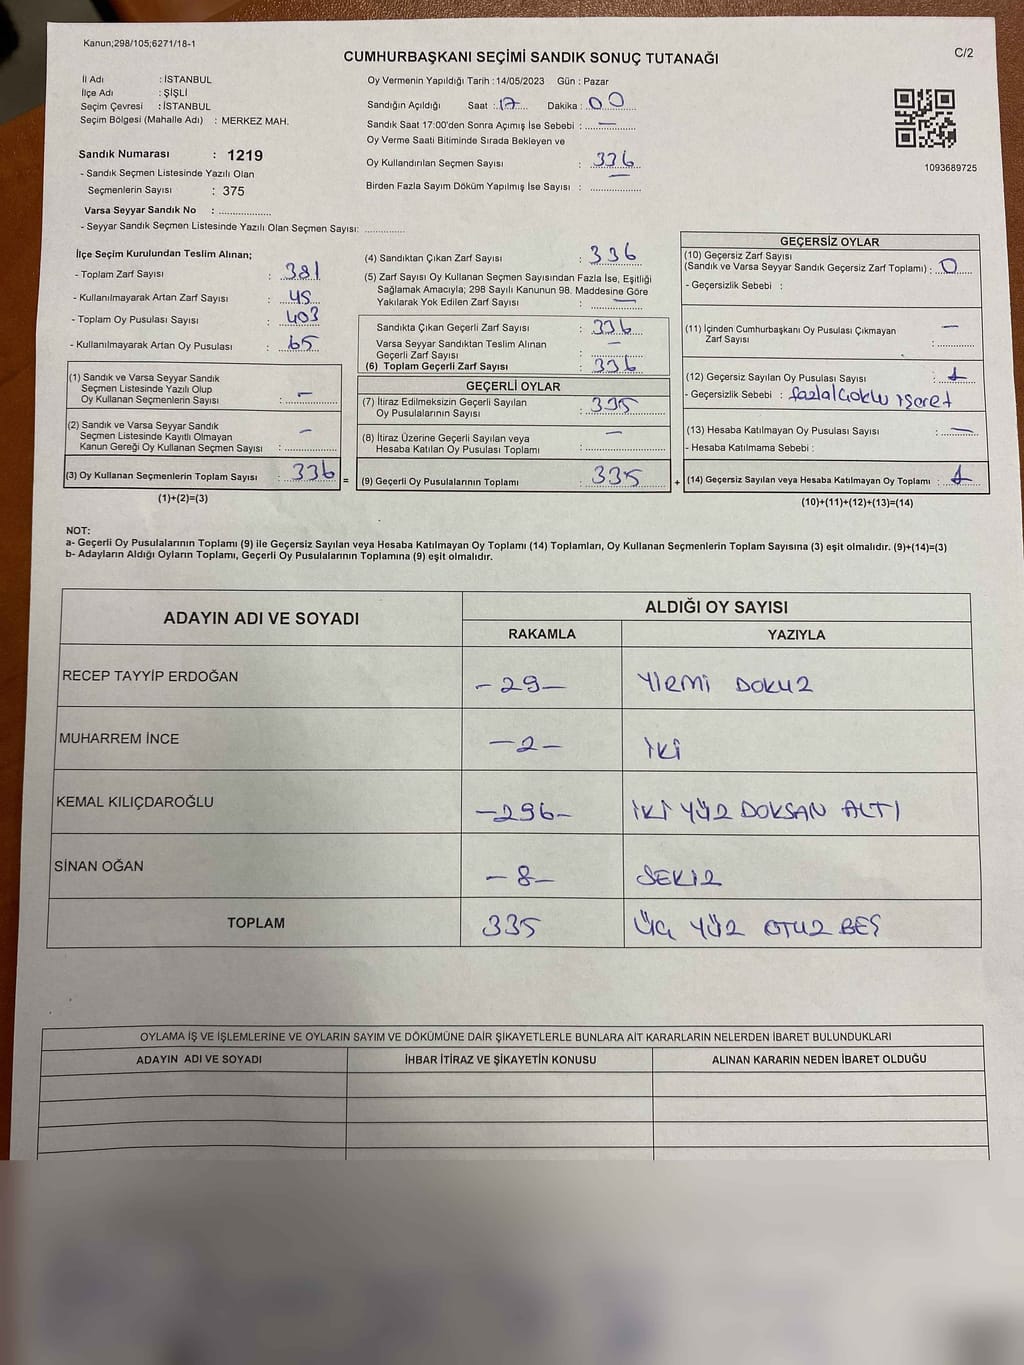 Kanun;298/105;6271/18-1
CUMHURBAŞKANI SEÇİMİ SANDIK SONUÇ TUTANAĞI
C/2
İl Adı : İSTANBUL
İlçe Adı : ŞİŞLİ
Seçim Çevresi : İSTANBUL
Seçim Bölgesi (Mahalle Adı) : MERKEZ MAH.
Sandık Numarası : 1219
- Sandık Seçmen Listesinde Yazılı Olan
Seçmenlerin Sayısı : 375
Varsa Seyyar Sandık No : ....................
- Seyyar Sandık Seçmen Listesinde Yazılı Olan Seçmen Sayısı: ..............
Oy Vermenin Yapıldığı Tarih : 14/05/2023 Gün : Pazar
Sandığın Açıldığı Saat : 17 Dakika : 00
Sandık Saat 17:00'den Sonra Açımış İse Sebebi : —
Oy Verme Saati Bitiminde Sırada Bekleyen ve
Oy Kullandırılan Seçmen Sayısı : 336
Birden Fazla Sayım Döküm Yapılmış İse Sayısı : ..................
1093689725
İlçe Seçim Kurulundan Teslim Alınan;
- Toplam Zarf Sayısı : 381
- Kullanılmayarak Artan Zarf Sayısı : 45
- Toplam Oy Pusulası Sayısı : 403
- Kullanılmayarak Artan Oy Pusulası : 65
(1) Sandık ve Varsa Seyyar Sandık
Seçmen Listesinde Yazılı Olup
Oy Kullanan Seçmenlerin Sayısı : —
(2) Sandık ve Varsa Seyyar Sandık
Seçmen Listesinde Kayıtlı Olmayan
Kanun Gereği Oy Kullanan Seçmen Sayısı : —
(3) Oy Kullanan Seçmenlerin Toplam Sayısı : 336 =
(1)+(2)=(3)
(4) Sandıktan Çıkan Zarf Sayısı : 336
(5) Zarf Sayısı Oy Kullanan Seçmen Sayısından Fazla İse, Eşitliği
Sağlamak Amacıyla; 298 Sayılı Kanunun 98. Maddesine Göre
Yakılarak Yok Edilen Zarf Sayısı : —
Sandıkta Çıkan Geçerli Zarf Sayısı : 336
Varsa Seyyar Sandıktan Teslim Alınan
Geçerli Zarf Sayısı : —
(6) Toplam Geçerli Zarf Sayısı : 336
GEÇERLİ OYLAR
(7) İtiraz Edilmeksizin Geçerli Sayılan
Oy Pusulalarının Sayısı : 335
(8) İtiraz Üzerine Geçerli Sayılan veya
Hesaba Katılan Oy Pusulası Toplamı : —
(9) Geçerli Oy Pusulalarının Toplamı : 335 +
GEÇERSİZ OYLAR
(10) Geçersiz Zarf Sayısı
(Sandık ve Varsa Seyyar Sandık Geçersiz Zarf Toplamı) : 0
- Geçersizlik Sebebi :
(11) İçinden Cumhurbaşkanı Oy Pusulası Çıkmayan
Zarf Sayısı : —
(12) Geçersiz Sayılan Oy Pusulası Sayısı : 1
- Geçersizlik Sebebi : fazla/çoklu işaret
(13) Hesaba Katılmayan Oy Pusulası Sayısı : —
- Hesaba Katılmama Sebebi :
(14) Geçersiz Sayılan veya Hesaba Katılmayan Oy Toplamı : 1
(10)+(11)+(12)+(13)=(14)
NOT:
a- Geçerli Oy Pusulalarının Toplamı (9) ile Geçersiz Sayılan veya Hesaba Katılmayan Oy Toplamı (14) Toplamları, Oy Kullanan Seçmenlerin Toplam Sayısına (3) eşit olmalıdır. (9)+(14)=(3)
b- Adayların Aldığı Oyların Toplamı, Geçerli Oy Pusulalarının Toplamına (9) eşit olmalıdır.
ADAYIN ADI VE SOYADI
ALDIĞI OY SAYISI
RAKAMLA YAZIYLA
RECEP TAYYİP ERDOĞAN -29- YİRMİ DOKUZ
MUHARREM İNCE -2- İKİ
KEMAL KILIÇDAROĞLU -296- İKİ YÜZ DOKSAN ALTI
SİNAN OĞAN -8- SEKİZ
TOPLAM 335 ÜÇ YÜZ OTUZ BEŞ
OYLAMA İŞ VE İŞLEMLERİNE VE OYLARIN SAYIM VE DÖKÜMÜNE DAİR ŞİKAYETLERLE BUNLARA AİT KARARLARIN NELERDEN İBARET BULUNDUKLARI
ADAYIN ADI VE SOYADI İHBAR İTİRAZ VE ŞİKAYETİN KONUSU ALINAN KARARIN NEDEN İBARET OLDUĞU